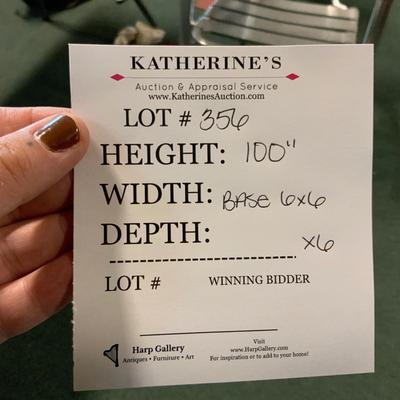 KATHERINE'S
Auction & Appraisal Service
www.KatherinesAuction.com
LOT # 356
HEIGHT: 100"
WIDTH: BASE 6x6
DEPTH: x6
LOT # WINNING BIDDER
Harp Gallery
Antiques • Furniture • Art
Visit
www.HarpGallery.com
For inspiration or to add to your home!